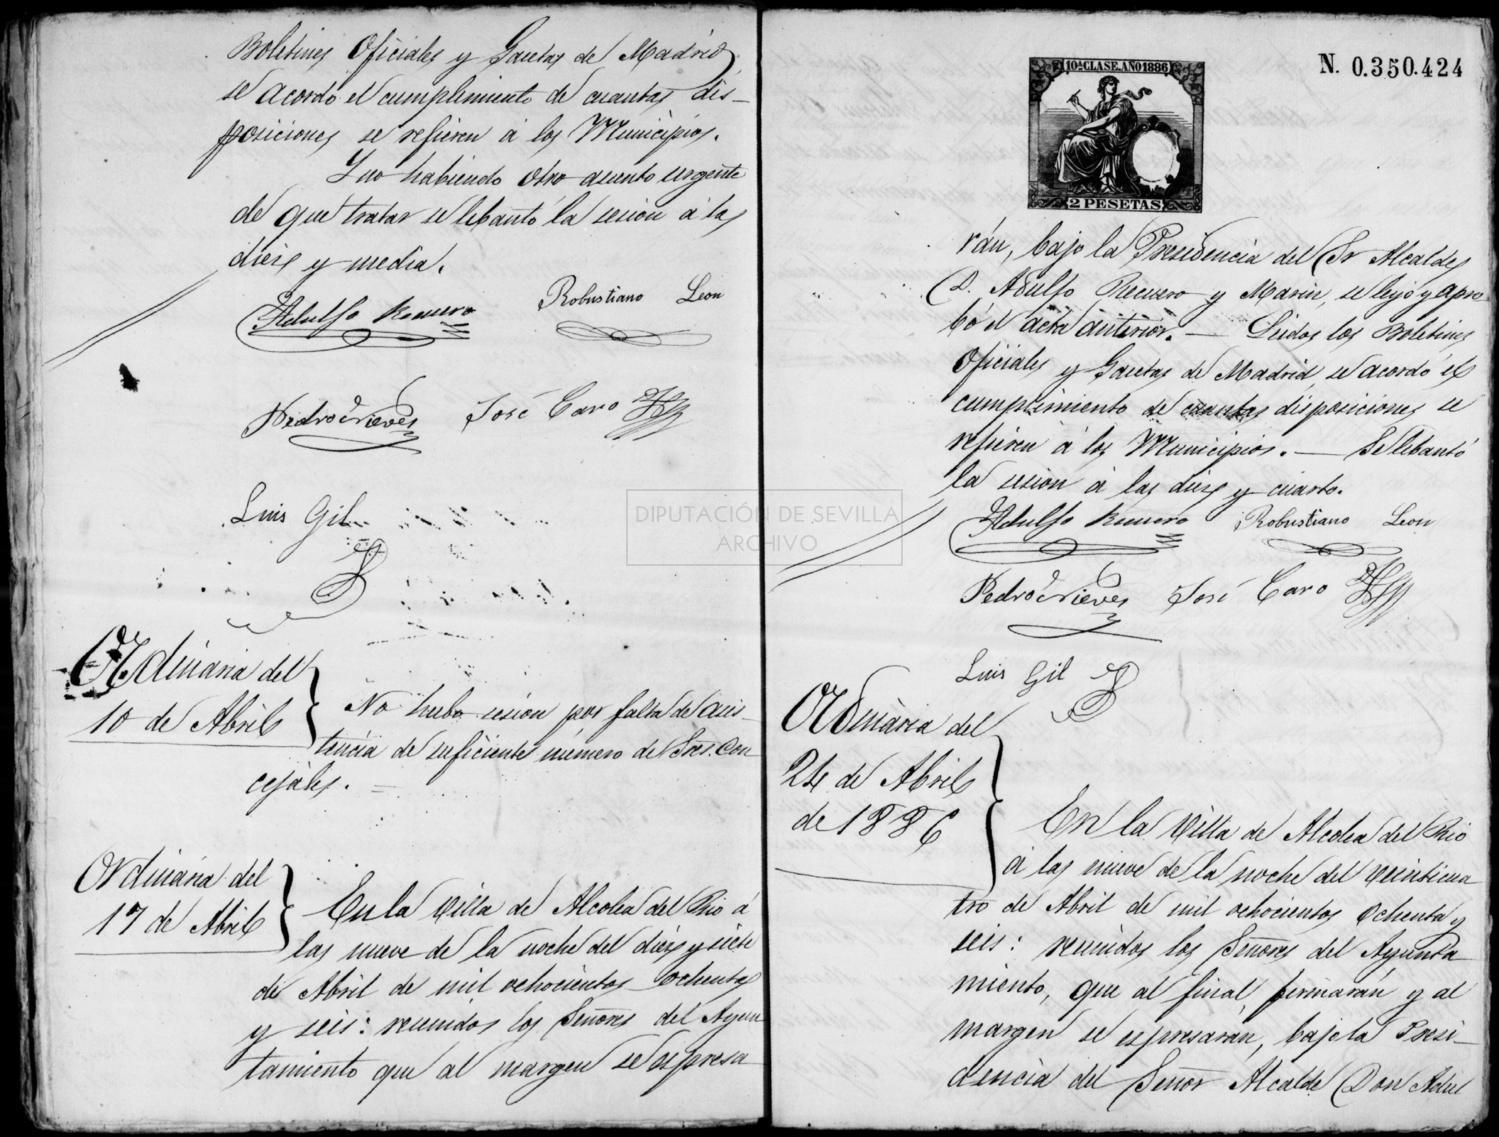 Boletines Oficiales y Gacetas de Madrid,
se acordó el cumplimiento de cuantas dis-
posiciones se refieren á los Municipios.
Y no habiendo otro asunto urgente
de que tratar se lebantó la sesion á las
diez y media.
Adulfo Romero Robustiano Leon
Pedro Nieves José Caro
Luis Gil
Ordinaria del
10 de Abril
No hubo sesion por falta de asis-
tencia de suficiente número de Sres. Con
cejales.
Ordinaria del
17 de Abril
En la Villa de Alcolea del Rio á
las nueve de la noche del diez y siete
de Abril de mil ochocientos ochenta
y seis: reunidos los Señores del Ayun
tamiento que al margen se espresa
N. 0.350.424
10ª CLASE. AÑO 1886
2 PESETAS
rán, bajo la Presidencia del Sr Alcalde
D. Adulfo Romero y Marin, se leyó y apro
bó el acta anterior. — Leidos los Boletines
Oficiales y Gacetas de Madrid, se acordó el
cumplimiento de cuantas disposiciones se
refieren á los Municipios. — Se lebantó
la sesion á las diez y cuarto.
Adulfo Romero Robustiano Leon
Pedro Nieves José Caro
Luis Gil
Ordinaria del
24 de Abril
de 1886
En la Villa de Alcolea del Rio
á las nueve de la noche del veinticua
tro de Abril de mil ochocientos ochenta y
seis: reunidos los Señores del Ayunta
miento, que al final firmarán y al
margen se espresarán, bajo la Presi-
dencia del Señor Alcalde Don Adul
DIPUTACIÓN DE SEVILLA
ARCHIVO